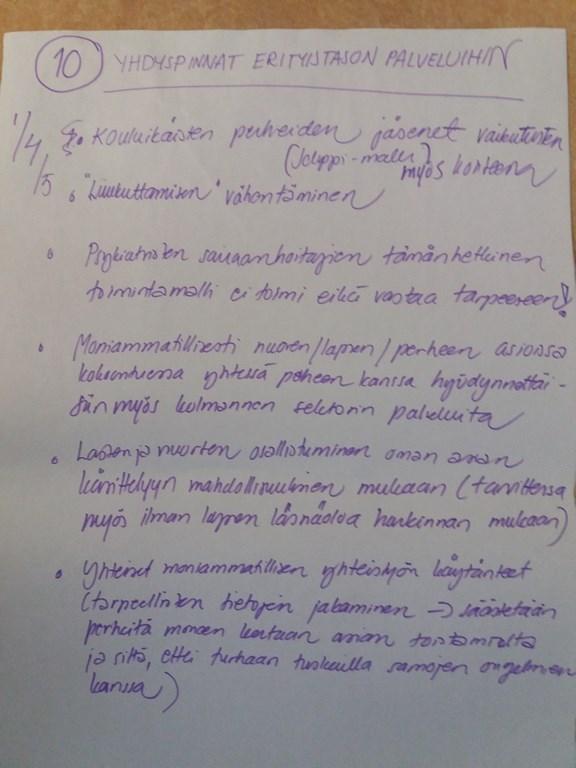 10 YHDYSPINNAT ERITYISTASON PALVELUIHIN
1/4 • Kouluikäisten perheiden jäsenet vaikutusten
(Jolyppi-malli) myös kohteena
1/5 • "Luukuttamisen" vähentäminen
• Psykiatristen sairaanhoitajien tämänhetkinen
toimintamalli ei toimi eikä vastaa tarpeeseen!
• Moniammatillisesti nuoren/lapsen/perheen asioissa
kokoontuessa yhtessä perheen kanssa hyödynnettäi-
siin myös kolmannen sektorin palveluita
• Lasten ja nuorten osallistuminen oman asian
käsittelyyn mahdollisuuksien mukaan (tarvittaessa
myös ilman lapsen läsnäoloa harkinnan mukaan)
• Yhteiset moniammatillisen yhteistyön käytänteet
(tarpeellisten tietojen jakaminen → säästetään
perheitä monen kertaan asian toistamiselta
ja siltä, ettei turhaan tuskailla samojen ongelmien
kanssa)